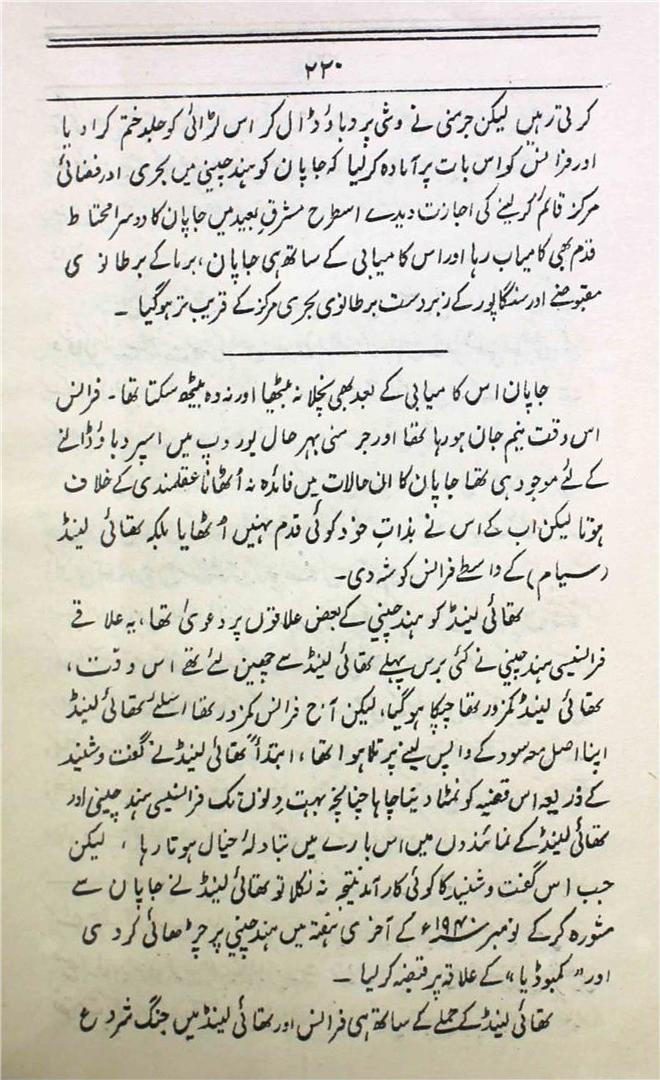 ۲۲۰
کرتی رہیں لیکن جرمنی نے وشی پر دباؤ ڈال کر اس لڑائی کو جلد ختم کرا دیا
اور فرانس کو اس بات پر آمادہ کر لیا کہ جاپان کو ہند چینی میں بحری اور فضائی
مرکز قائم کر لینے کی اجازت دیدے اسطرح مشرقِ بعید میں جاپان کا دوسرا محتاط
قدم بھی کامیاب رہا اور اس کامیابی کے ساتھ ہی جاپان، برما کے برطانوی
مقبوضے اور سنگاپور کے زبردست برطانوی بحری مرکز کے قریب تر ہو گیا ۔
جاپان اس کامیابی کے بعد بھی نچلا نہ بیٹھا اور نہ وہ بیٹھ سکتا تھا۔ فرانس
اس وقت نیم جان ہو رہا تھا اور جرمنی بہر حال یورپ میں اسپر دباؤ ڈالنے
کے لئے موجود ہی تھا جاپان کا ان حالات میں فائدہ نہ اُٹھانا عقلمندی کے خلاف
ہوتا لیکن اب کے اس نے بذاتِ خود کوئی قدم نہیں اُٹھایا بلکہ تھائی لینڈ
(سیام) کے واسطے فرانس کو شہ دی۔
تھائی لینڈ کو ہند چینی کے بعض علاقوں پر دعویٰ تھا، یہ علاقے
فرانسیسی ہند چینی نے کئی برس پہلے تھائی لینڈ سے چھین لئے تھے اس وقت،
تھائی لینڈ کمزور تھا چپکا ہو گیا، لیکن آج فرانس کمزور تھا اسلئے تھائی لینڈ
اپنا اصل معہ سود کے واپس لینے پر تلا ہوا تھا، ابتداً تھائی لینڈ نے گفت و شنید
کے ذریعہ اس قضیہ کو نمٹا دینا چاہا چنانچہ بہت دِلوں تک فرانسیسی ہند چینی اور
تھائی لینڈ کے نمائندوں میں اس بارے میں تبادلۂ خیال ہوتا رہا ، لیکن
جب اس گفت و شنید کا کوئی کارآمد نتیجہ نہ نکلا تو تھائی لینڈ نے جاپان سے
مشورہ کر کے نومبر ۱۹۴۰ء کے آخری ہفتہ میں ہند چینی پر چڑھائی کر دی
اور "کمبوڈیا" کے علاقہ پر قبضہ کر لیا ۔
تھائی لینڈ کے حملے کے ساتھ ہی فرانس اور تھائی لینڈ میں جنگ شروع